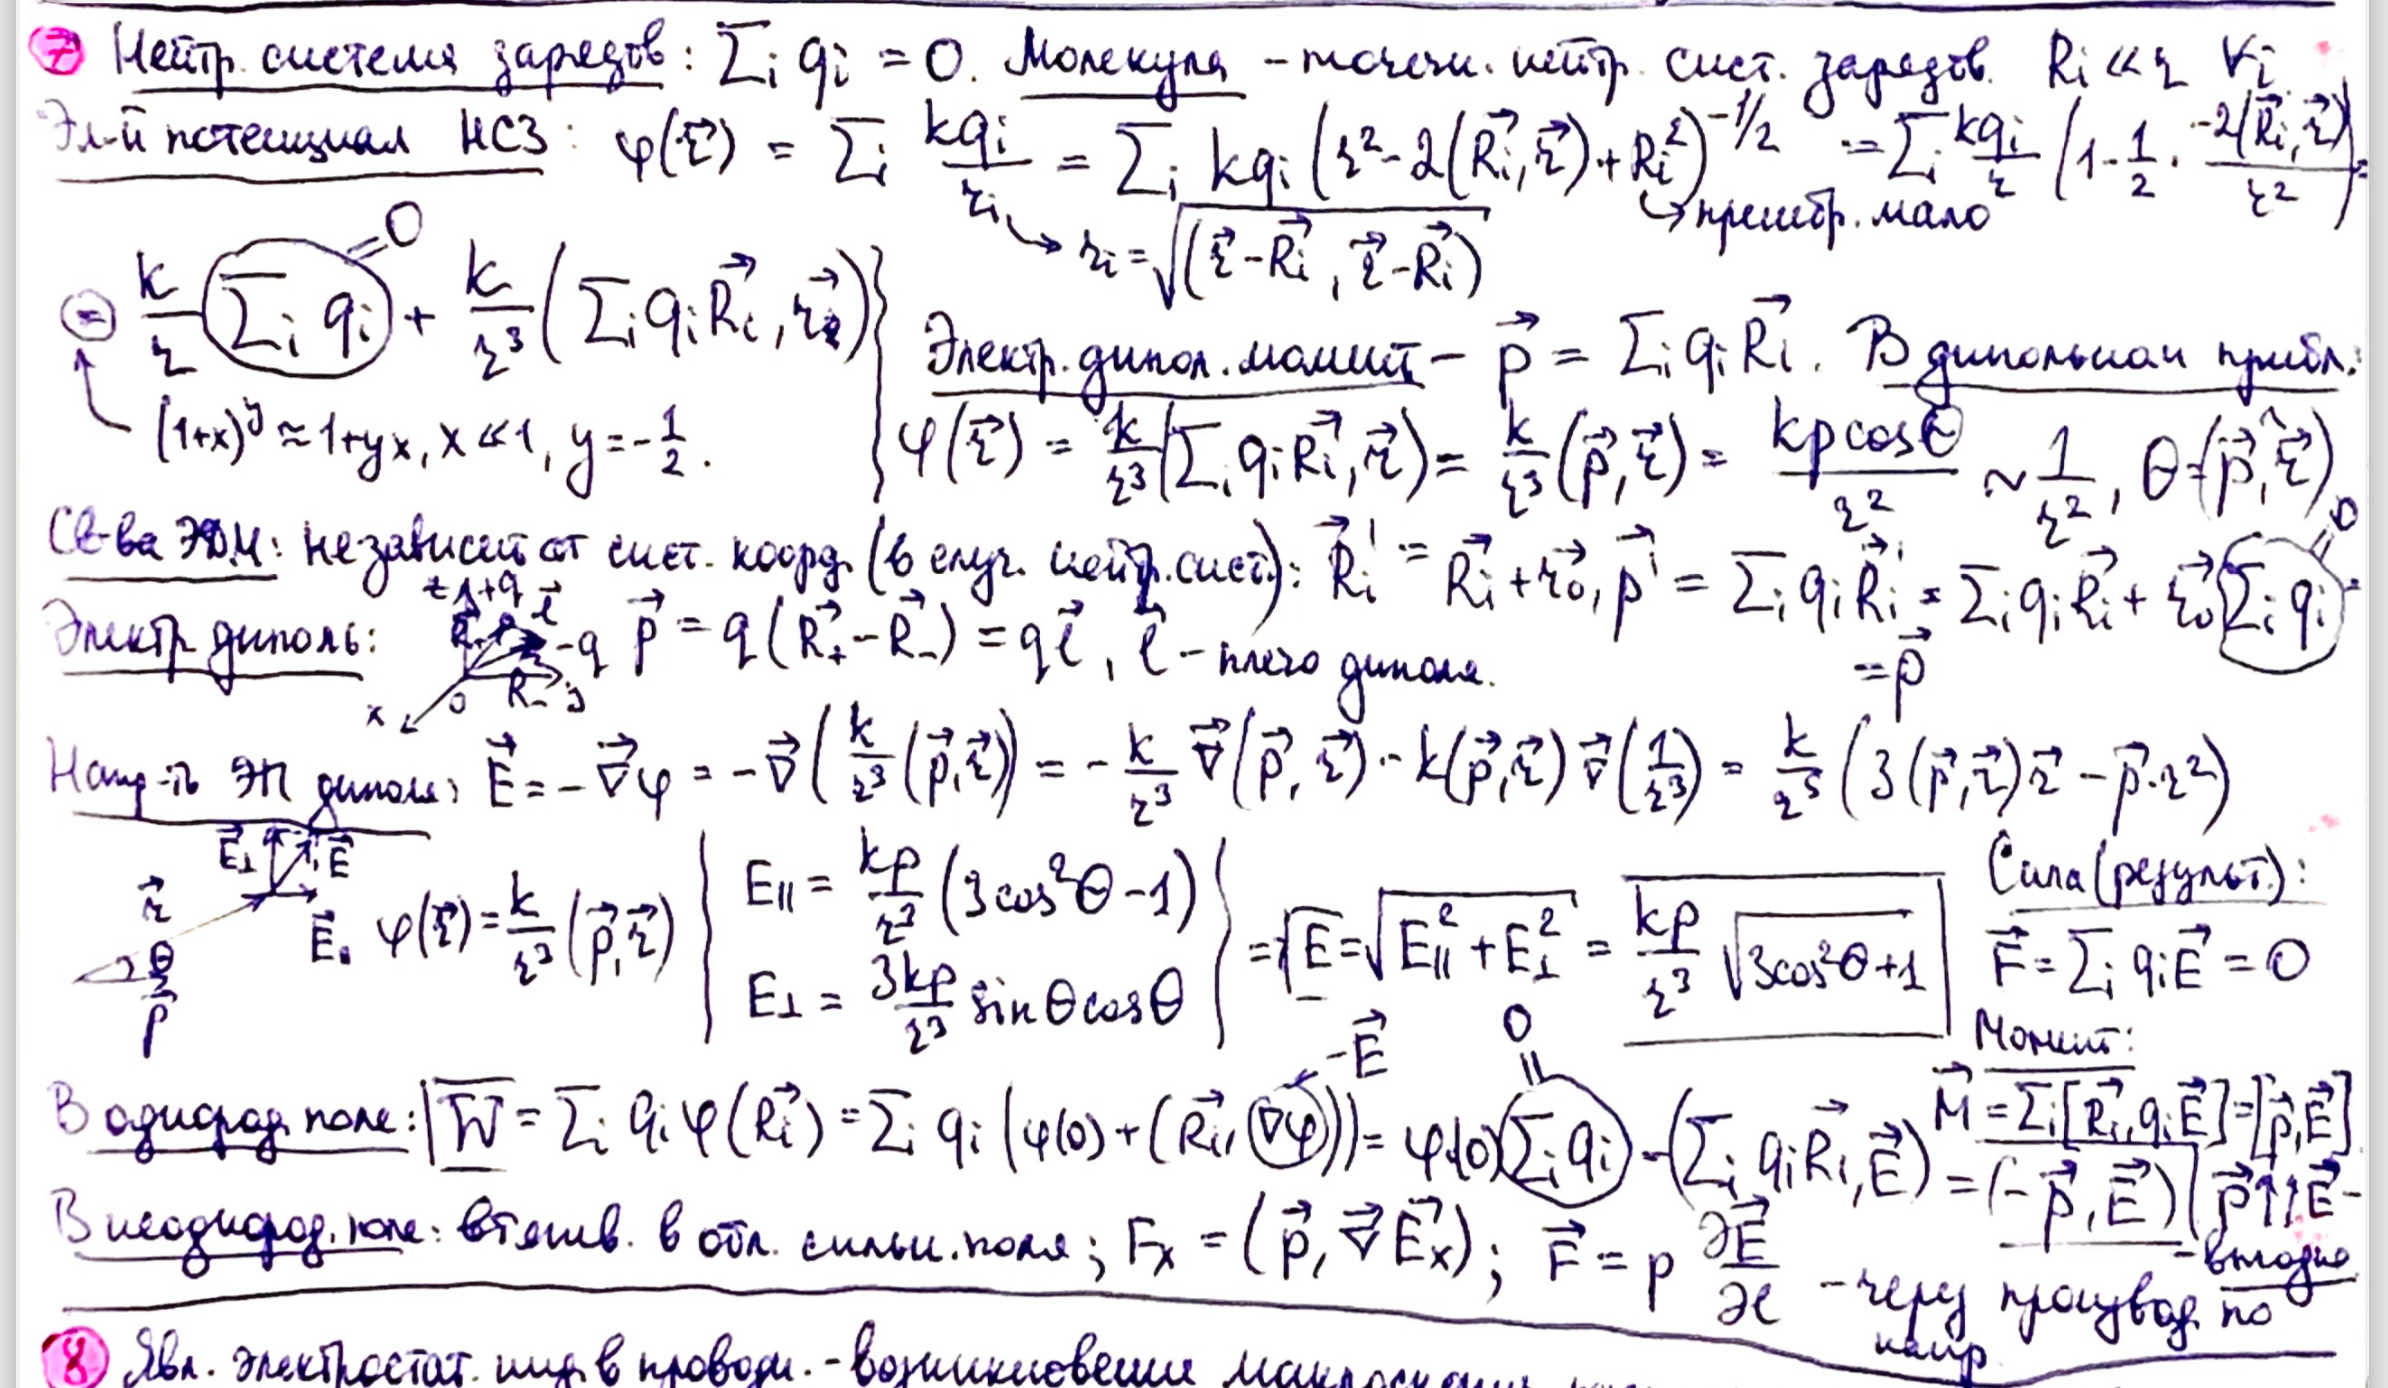 7 Нейтр. система зарядов: Σᵢ qᵢ = 0. Молекула – точечн. нейтр. сист. зарядов. Rᵢ ≪ r ∀i.
Эл-й потенциал НСЗ: φ(r⃗) = Σᵢ kqᵢ/rᵢ = Σᵢ kqᵢ (r² - 2(R⃗ᵢ, r⃗) + Rᵢ²)^(-1/2) = Σᵢ kqᵢ/r (1 - 1/2 · -2(R⃗ᵢ, r⃗)/r²) =
→ rᵢ = √(r⃗ - R⃗ᵢ, r⃗ - R⃗ᵢ) ↳ пренебр. мало
= k/r Σᵢ qᵢ + k/r³ (Σᵢ qᵢR⃗ᵢ, r⃗) } = 0
(1+x)^y ≈ 1+yx, x ≪ 1, y = -1/2.
Электр. дипол. момент – p⃗ = Σᵢ qᵢR⃗ᵢ. В дипольном прибл.:
φ(r⃗) = k/r³ (Σᵢ qᵢR⃗ᵢ, r⃗) = k/r³ (p⃗, r⃗) = kp cosθ/r² ~ 1/r², θ = (p⃗,^r⃗)
Св-ва ЭДМ: независит от сист. коорд. (в случ. нейтр. сист.): R⃗ᵢ' = R⃗ᵢ + r⃗₀, p⃗' = Σᵢ qᵢR⃗ᵢ' = Σᵢ qᵢR⃗ᵢ + r⃗₀ Σᵢ qᵢ = = 0
= p⃗
Электр. диполь: z +q l⃗ -q R₋ x 0 y p⃗ = q(R⃗₊ - R⃗₋) = ql⃗, l⃗ – плечо диполя.
Напр-ть ЭП диполя: E⃗ = -∇⃗φ = -∇⃗(k/r³ (p⃗, r⃗)) = -k/r³ ∇⃗(p⃗, r⃗) - k(p⃗, r⃗) ∇⃗(1/r³) = k/r⁵ (3(p⃗, r⃗)r⃗ - p⃗·r²)
E⃗⊥ E⃗ r⃗ θ p⃗ φ(r⃗) = k/r³ (p⃗, r⃗)
E∥ = kp/r³ (3cos²θ - 1)
E⊥ = 3kp/r³ sinθcosθ
= E = √(E∥² + E⊥²) = kp/r³ √(3cos²θ+1)
Сила (результ.):
F⃗ = Σᵢ qᵢE⃗ = 0
Момент:
M⃗ = Σᵢ [R⃗ᵢ, qᵢE⃗] = [p⃗, E⃗]
В однород. поле: W = Σᵢ qᵢφ(R⃗ᵢ) = Σᵢ qᵢ (φ(0) + (R⃗ᵢ, ∇φ)) = φ(0) Σᵢ qᵢ - (Σᵢ qᵢR⃗ᵢ, E⃗) = (-p⃗, E⃗) p⃗↑↑E⃗ -
-E⃗ 0
- выгодно
В неоднород. поле: втягив. в обл. сильн. поля; Fₓ = (p⃗, ∇⃗Eₓ); F⃗ = p ∂E⃗/∂l – через производ. по
напр
8 Явл. электростат. инд. в проводн. – возникновение